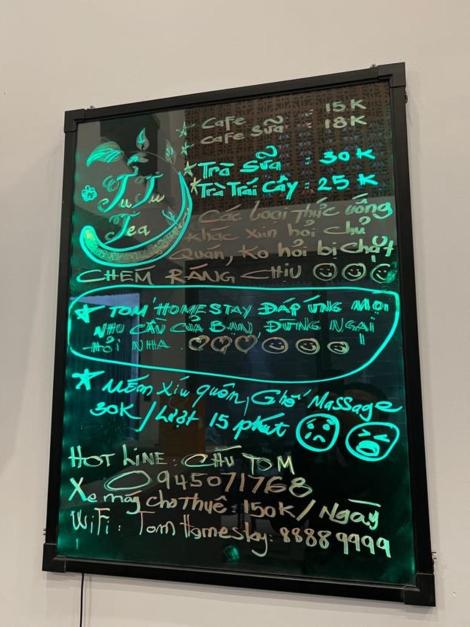 Tu Tu
Tea
Cafe : 15K
Cafe sữa : 18K
Trà Sữa : 30K
Trà Trái Cây : 25K
Các loại thức uống
khác xin hỏi chủ
Quán, Ko hỏi bị chặt
CHÉM RÁNG CHỊU
TOM HOMESTAY ĐÁP ỨNG MỌI
NHU CẦU CỦA BẠN, ĐỪNG NGẠI
HỎI NHA.
Mếán Xỉu quên, Ghế Massage
30K/Lượt 15 phút
HOT LINE : CHÚ TOM
0945071768
Xe máy cho Thuê : 150K/Ngày
WiFi : Tom Homestay : 88889999